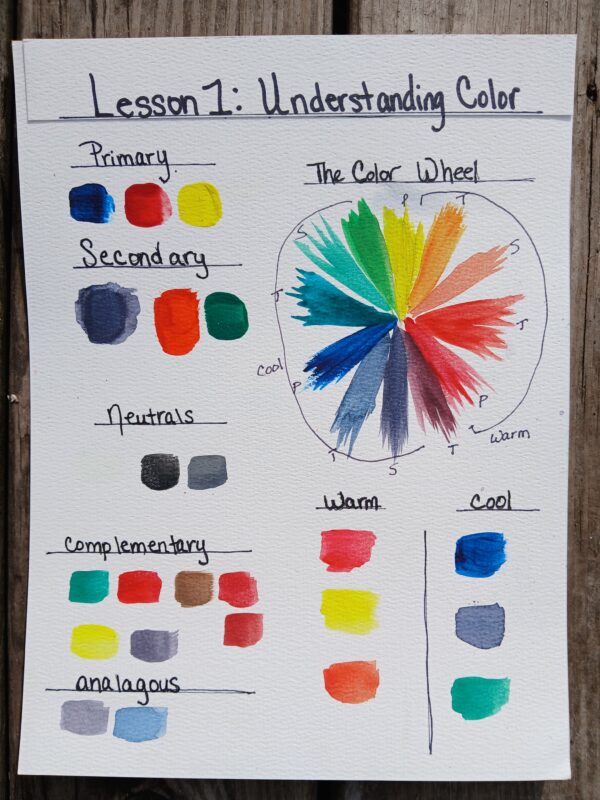 Lesson 1: Understanding Color
Primary
The Color Wheel
P
T
S
S
Secondary
T
T
Cool
P
P
Warm
T
T
S
Neutrals
Warm
Cool
Complementary
analagous